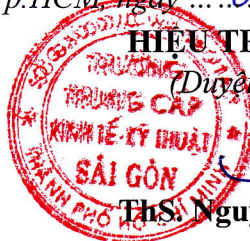 p.HCM, ngày
HIỆU TR
(Duyệ
TRƯỜNG
TRUNG CẤP
KINH TẾ-KỸ THUẬT
SÀI GÒN
THÀNH PHỐ HỒ CHÍ MINH
ThS. Ngu